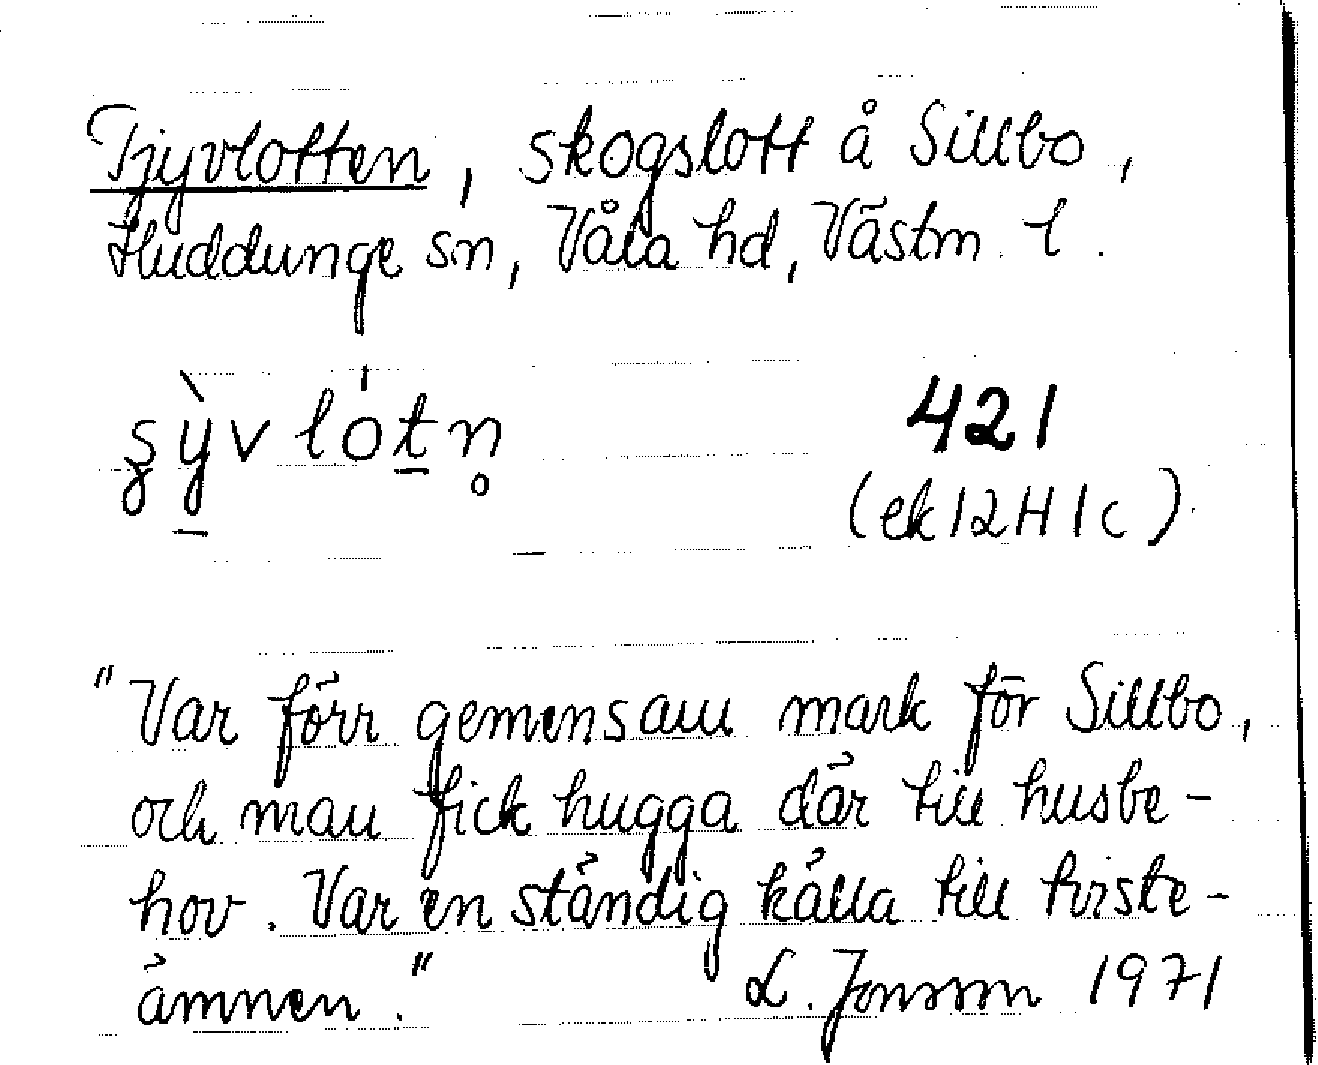 Tjyvlotten, skogslott å Sillbo,
Huddunge sn, Våla hd, Västm. l.
421
(ek 12 H 1 c)
"Var förr gemensam mark för Sillbo,
och man fick hugga där till husbe-
hov. Var en ständig källa till tviste-
ämnen."
L. Jonsson 1971